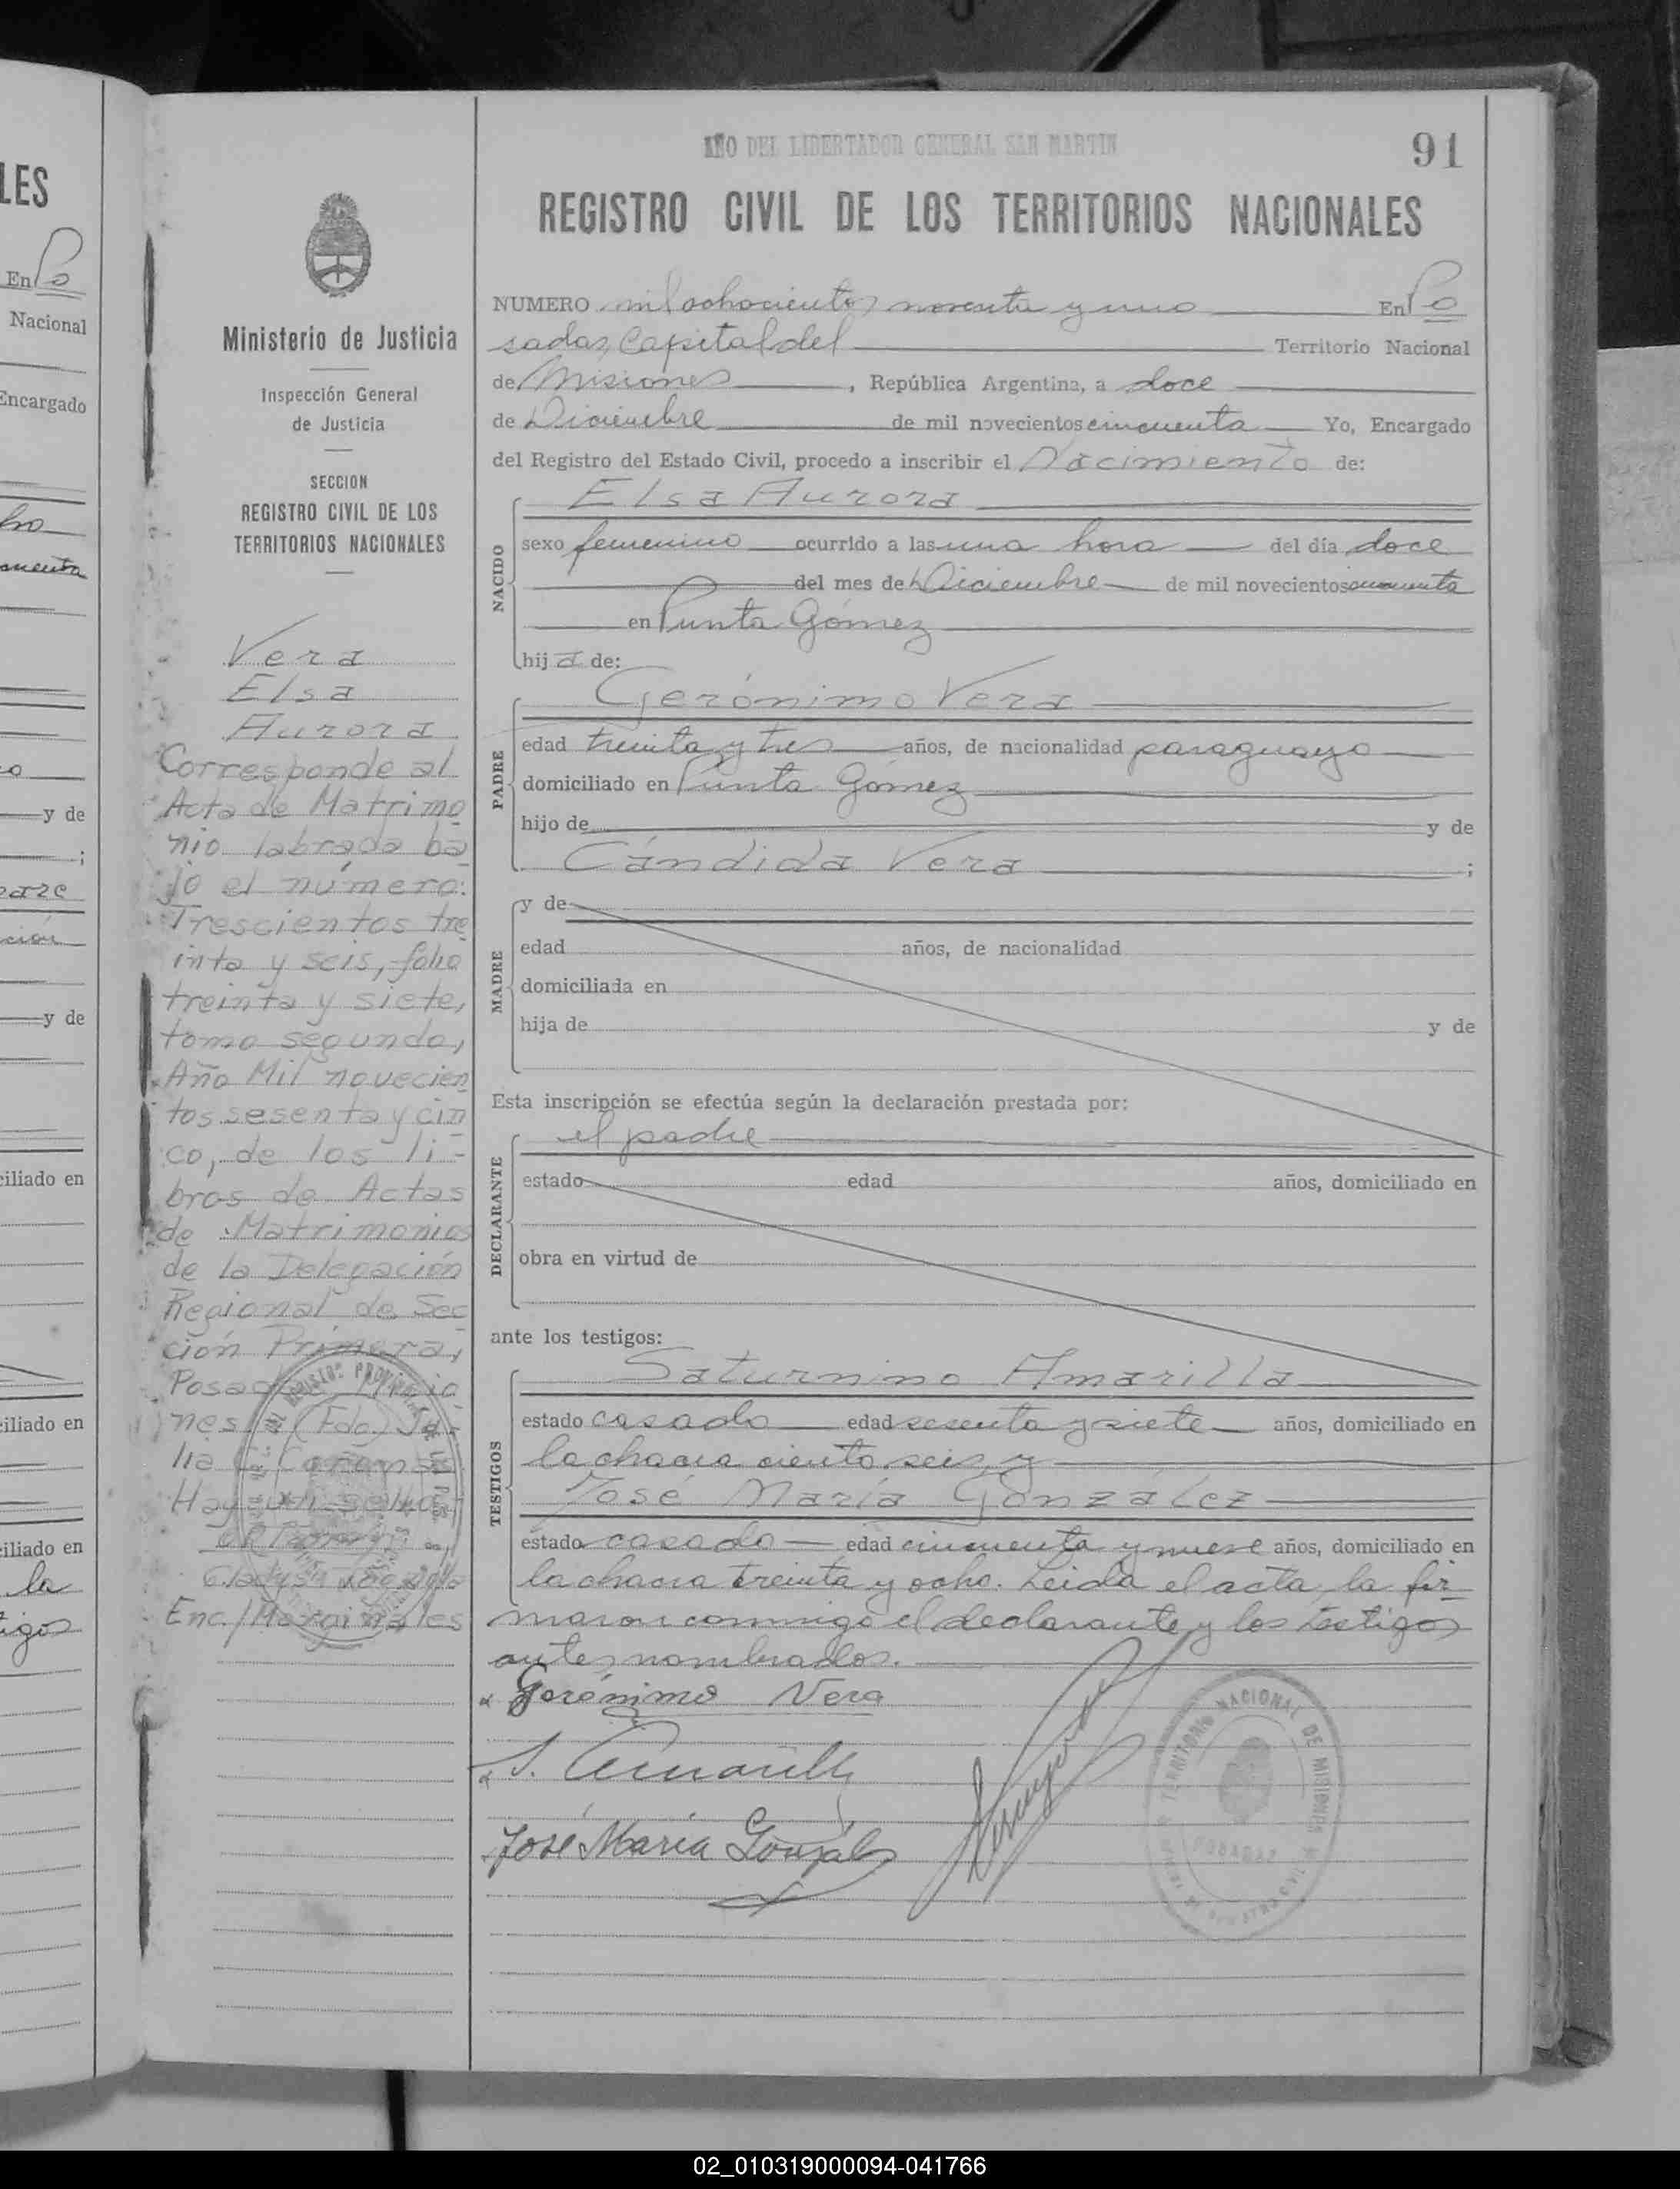 LES
En Po
Nacional
Encargado
y de
;
y de
ciliado en
ciliado en
ciliado en
la
Ministerio de Justicia
Inspección General
de Justicia
SECCION
REGISTRO CIVIL DE LOS
TERRITORIOS NACIONALES
Vera
Elsa
Aurora
Corresponde al
Acta de Matrimo
nio labrada ba
jo el número:
Trescientos tre
inta y seis, folio
treinta y siete,
tomo segundo,
Año Mil novecien
tos sesenta y cin
co, de los li-
bros de Actas
de Matrimonios
de la Delegación
Regional de Sec
ción Primera,
Posadas, Misio
nes. (Fdo.)
Hay un sello.
Enc./Marginales
AÑO DEL LIBERTADOR GENERAL SAN MARTIN
91
REGISTRO CIVIL DE LOS TERRITORIOS NACIONALES
NUMERO mil ochocientos noventa y uno En Po
sadas, Capital del Territorio Nacional
de Misiones, República Argentina, a doce
de Diciembre de mil novecientos cincuenta Yo, Encargado
del Registro del Estado Civil, procedo a inscribir el Nacimiento de:
NACIDO
Elsa Aurora
sexo femenino ocurrido a las una hora del día doce
del mes de Diciembre de mil novecientos cincuenta
en Punta Gómez
hija de:
PADRE
Gerónimo Vera
edad treinta y tres años, de nacionalidad paraguayo
domiciliado en Punta Gómez
hijo de y de
Cándida Vera ;
MADRE
y de
edad años, de nacionalidad
domiciliada en
hija de y de
Esta inscripción se efectúa según la declaración prestada por:
DECLARANTE
el padre
estado edad años, domiciliado en
obra en virtud de
ante los testigos:
TESTIGOS
Saturnino Amarilla
estado casado edad sesenta y siete años, domiciliado en
la chacra ciento seis, y
José María González
estado casado edad cincuenta y nueve años, domiciliado en
la chacra treinta y ocho. Leida el acta, la fir
maron conmigo el declarante y los testigos
antes nombrados.
Gerónimo Vera
S. Amarilla
José María González
TERRITORIO NACIONAL DE MISIONES
POSADAS
02_010319000094-041766